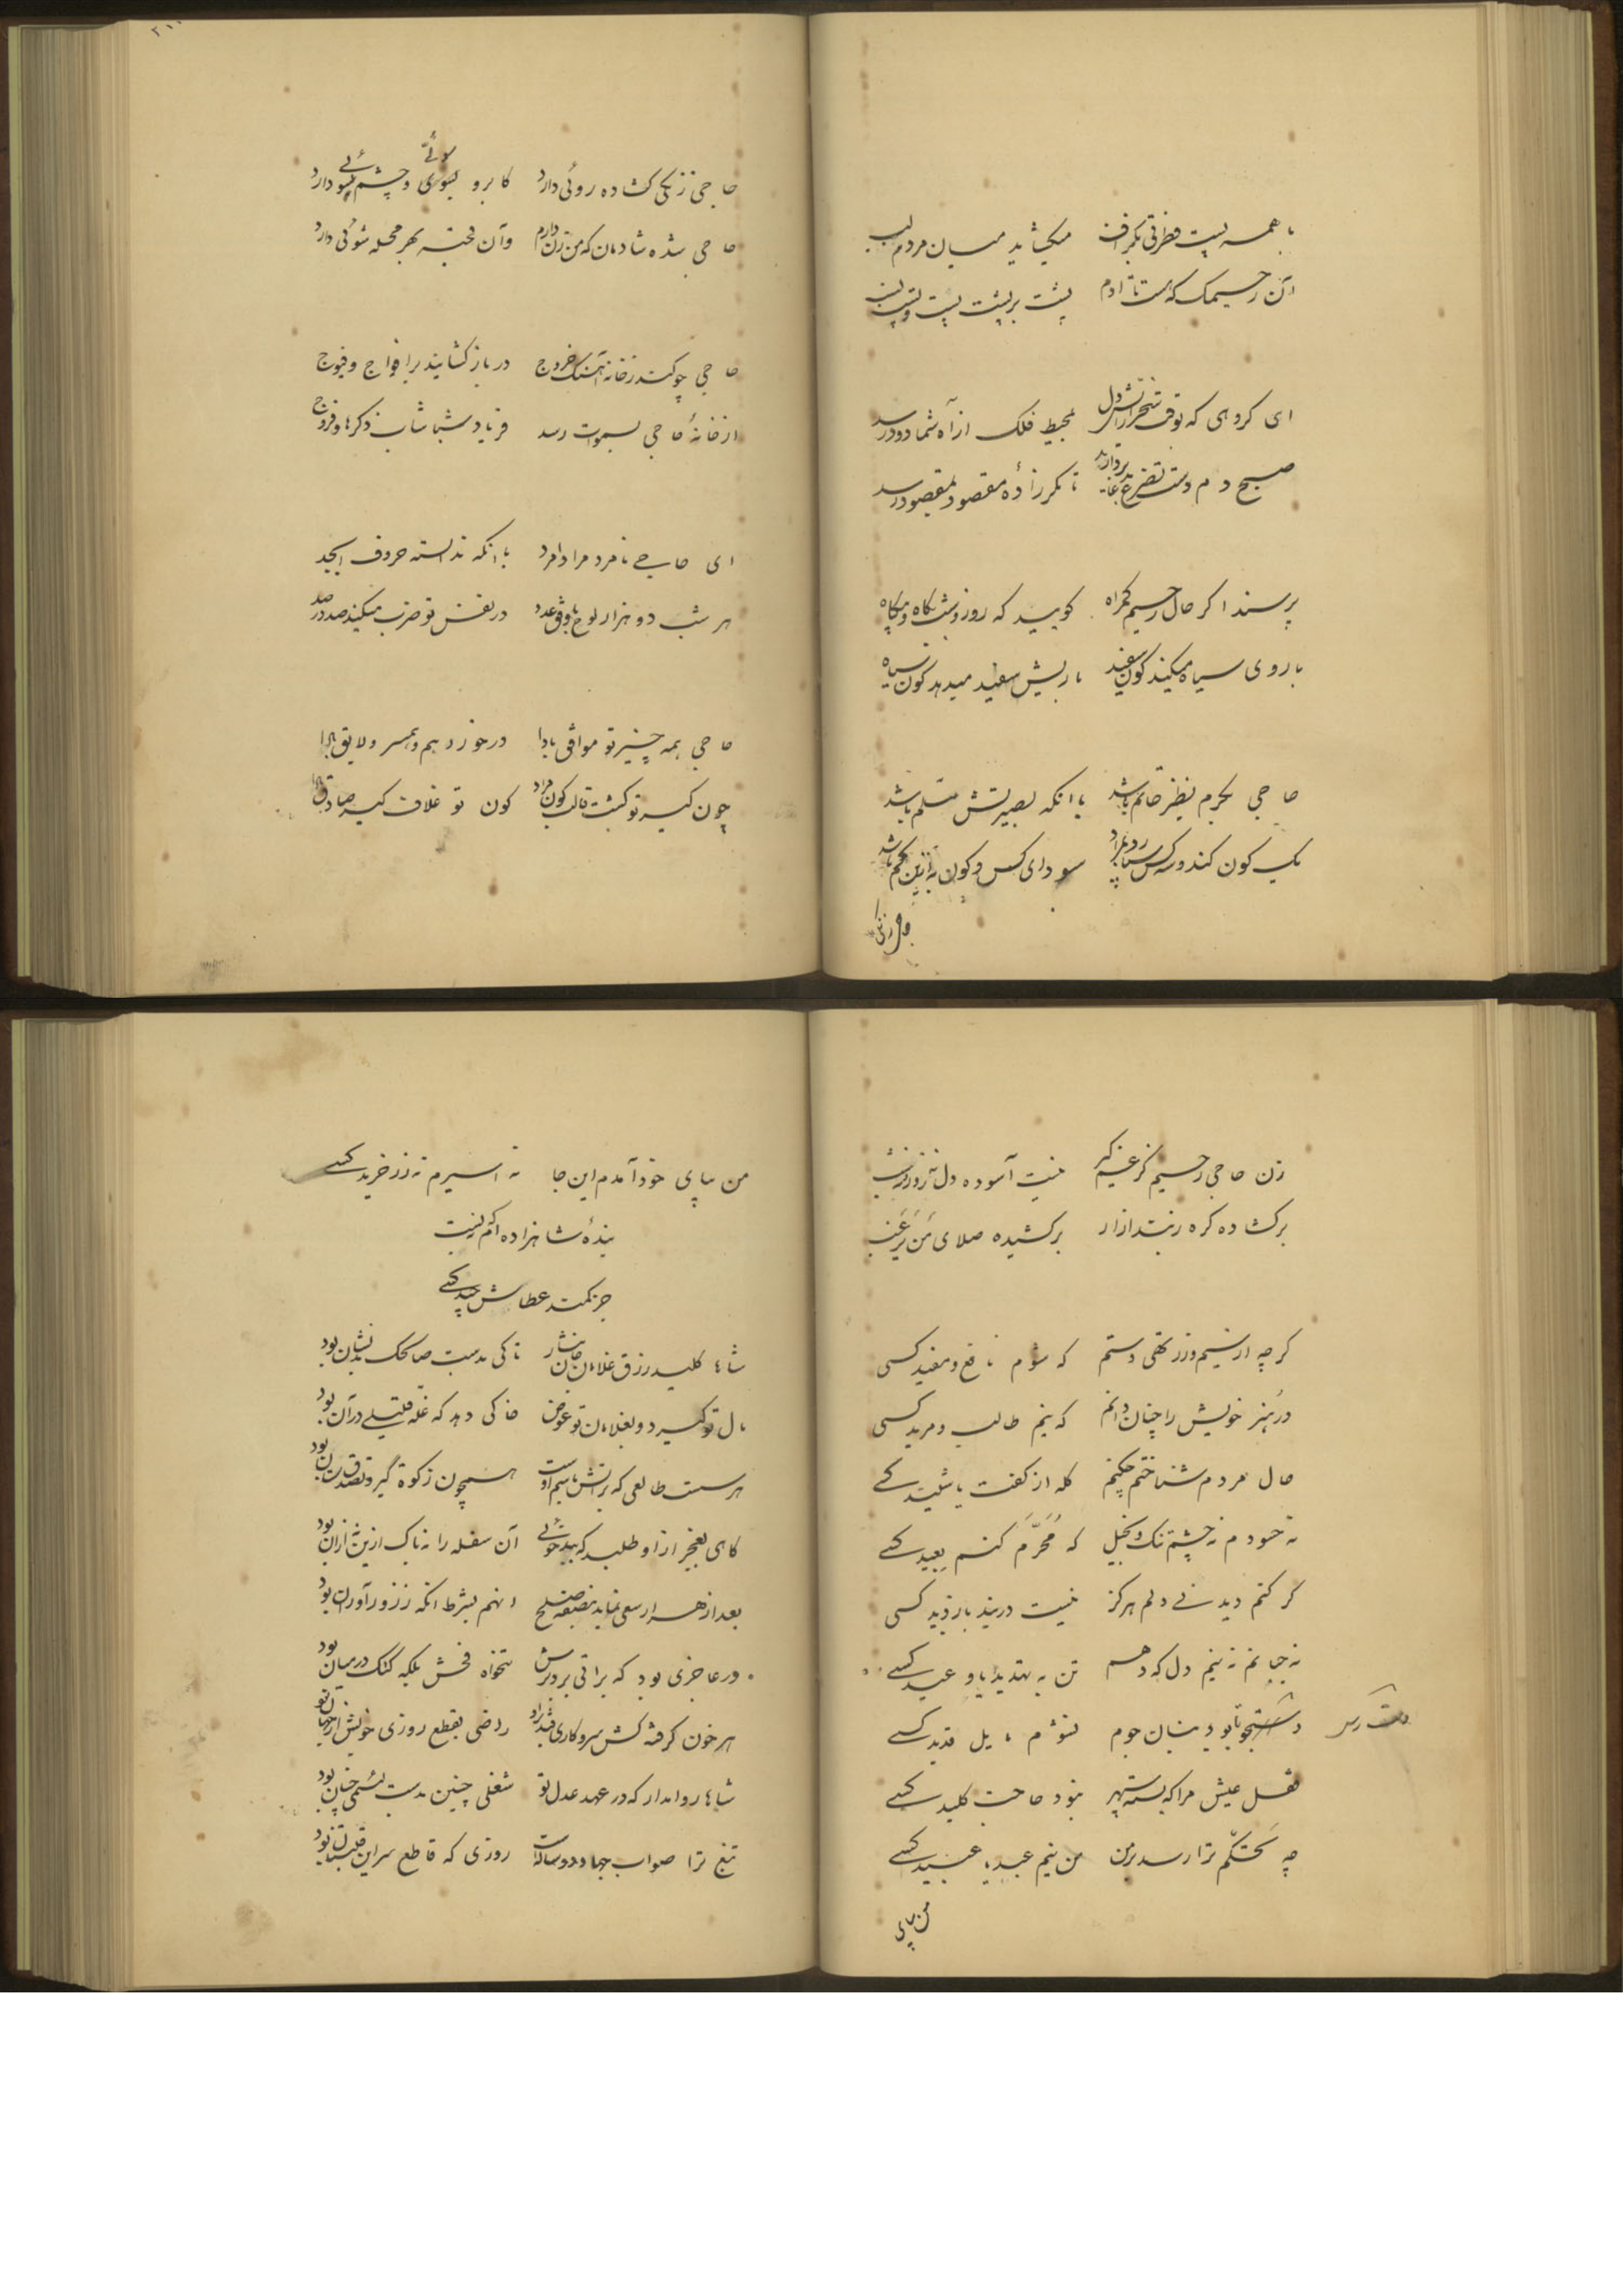 با همه پست فطرتی بگزاف میکشاید میان مردم لب
آن رحیمک که هست تا آدم پشت بر پشت پست و پست نسب
ای گروهی که تف آتش دل بمحیط فلک از آه شما دود رسد
صبح دم دست تضرع بدعا بردارید تا مگر زاده مقصود بمقصود رسد
پرسند اگر حال رحیم گمراه گویید که روز و شب گاه و بیگاه
با روی سیاه میکند کون سفید با ریش سفید میدهد کون سیاه
حاجی بحرم بنظر خاتم باشد با انکه بصیرتش مسلم باشد
یک کون کند و سه کس سودای کس و کون باین محکم باشد
حاجی زنکی
حاجی زنکی گشاده روئی دارد کابرو سوئی و چشم سوئی دارد
حاجی شده شادمان که من زن دارم وآن قحبه بهر محله شوئی دارد
حاجی چو کند ز خانه آهنگ خروج در باز گشایند بر افواج و فیوج
از خانهٔ حاجی بسموات رسد فریاد شباشاب ذکرها و فروج
ای حاجی نامرد مرادامرد با انکه ندانسته حروف ابجد
هر شب دو هزار لوح با وفق عدد در نفس تو ضرب میکند صد در صد
حاجی همه چیز تو موافق بادا در خورد هم و همسر و لایق بادا
چون کیر تو گشت قالب کون مراد کون تو غلاف کیر صادق بادا
زن حاجی رحیم کز غم کیر نیست آسوده دل نه روز و نه شب
برگشاده گره ز بند ازار برکشیده صلای من یرغب
گرچه از سیم و زر تهی دستم که شوم نافع و مفید کسی
در هنر خویش را چنان دانم که نیم طالب و مرید کسی
حال مردم شناختم چکنم گله از گفت یا شنید کسی
نه حسودم نه چشم تنگ و بخیل که مُحَرَّم کنم بعید کسی
گر کنم دیدنی دلم هرگز نیست در بند بازدید کسی
نه جبانم نه نیم دل که دهم تن به تهدید یا وعید کسی
دست رس
دستجو تا بود بنان جوم نشوم مایل قدید کسی
قفل عیش مرا که بست سپهر نبود حاجت کلید کسی
چه تحکّم ترا رسد بر من من نیم عبد یا عبید کسی
من بپای
من بپای خود آمدم این جا نه اسیرم نه زرخرید کسی
بندهٔ شاهزاده اکرم نیست
جز کمند عطاش بند کسی
شاها کلید رزق غلامان جان نثار تا کی بدست صالحک بدنشان بود
مال تو گیرد و بغلامان تو عوض خاکی دهد که غله قلیلی در آن بود
هر سست طالعی که براتش باسم اوست همچون زکوة گیر و تصدق ستان بود
گاهی بفجر از او طلبد که بیدخوئی آن سفله را نه باک ازین نه از ان بود
بعد از هزار سعی نماید بنصفه صلح انهم بشرط انکه ز زورآوران بود
ور عاجزی بود که براتی برد برش تنخواه فحش بلکه کتک در میان بود
هر خون گرفته کش سر و کاری فتد باو راضی بقطع روزی خویش از جهان بود
شاها روا مدار که در عهد عدل تو شغلی چنین بدست لئیمی چنان بود
تیغ ترا صواب جهاد دو ساله است روزی که قاطع سر این قلتبان بود